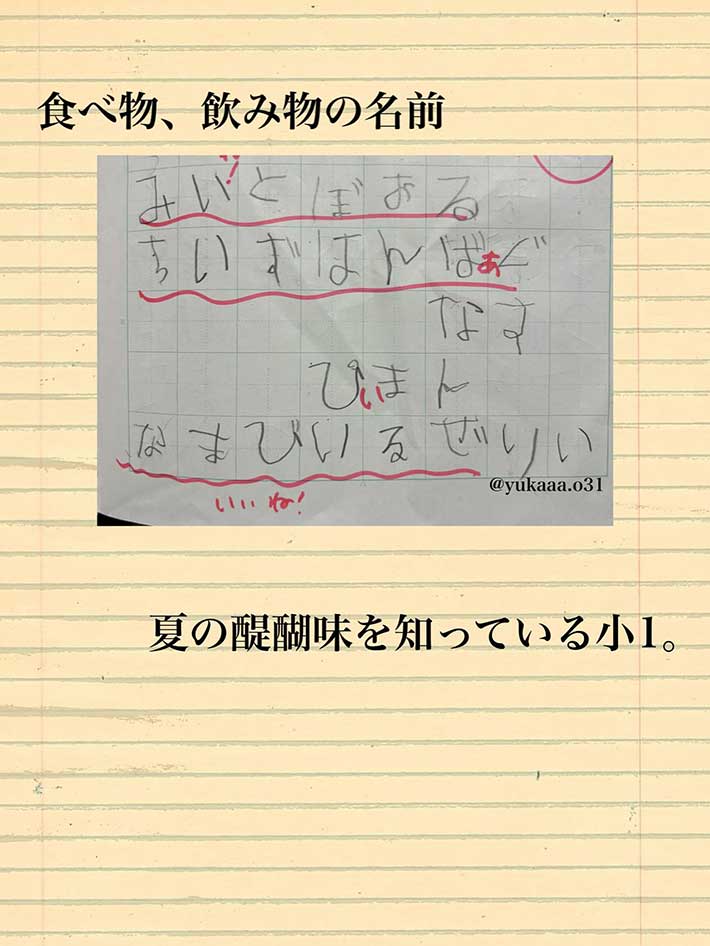 食べ物、飲み物の名前
みいとぼおる
ちいずはんばあぐ
なす
ぴいまん
なまびいるぜりい
@yukaaa.o31
いいね!
夏の醍醐味を知っている小1。